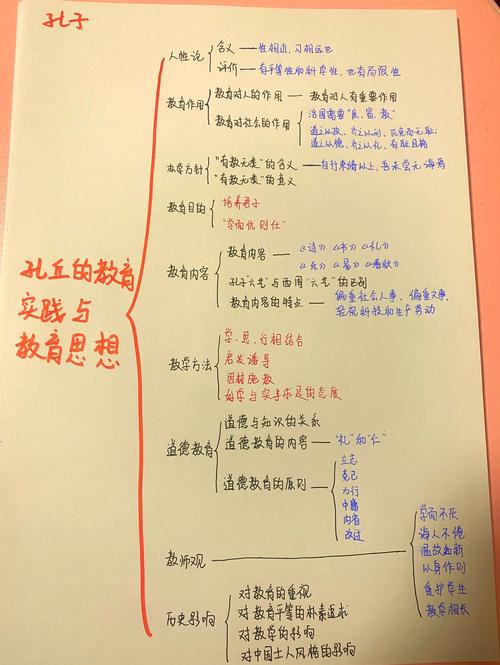 孔子
孔丘的教育
实践与
教育思想
人性论
含义 — 性相近,习相远也
评价 — 有平等性和科学性,也有局限性
教育作用
教育对人的作用 — 教育对人有重要作用
教育对社会的作用
治国需要“庶、富、教”
道之以政,齐之以刑,民免而无耻;
道之以德,齐之以礼,有耻且格
办学方针
“有教无类”的含义 — 自行束脩以上,吾未尝无诲焉
“有教无类”的意义
教育目的
培养君子
“学而优则仕”
教育内容
教育内容 — 《诗》《书》《礼》
《乐》《易》《春秋》
孔子“六艺”与西周“六艺”的区别
教育内容的特点 — 偏重社会人事、偏重文事、
轻视科技和生产劳动
教学方法
学、思、行相结合
启发诱导
因材施教
好学与实事求是的态度
道德教育
道德与知识的关系
道德教育的内容 — “礼”和“仁”
道德教育的原则
立志
克己
力行
中庸
内省
改过
教师观
学而不厌
诲人不倦
温故知新
以身作则
爱护学生
教学相长
历史影响
对教育的重视
对教育平等的朴素追求
对教学的影响
对中国士人风格的影响